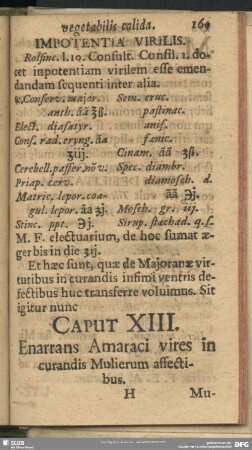 vegetabilis calida. 169
IMPOTENTIA VIRILIS.
Rolfinc. l. 10. Consult. Consil. 1. do-
cet inpotentiam virilem esse emen-
dandam sequenti inter alia.
℞. Conserv. major. Sem. eruc.
anth. āā ʒß. pastinac.
Elect. diasatyr. anis.
Conf. rad. eryng. āā fœnic.
ʒiij. Cinam. āā ʒß.
Cerebell. passer. nō v. Spec. diambr.
Priap. cerv. diamosch. d.
Matric. lepor. coa- āā ℈j.
gul. lepor. āā ʒj. Mosch. gr. iij.
Stinc. ppt. ℈j. Sirup. stœchad. q. s.
M. F. electuarium, de hoc sumat æ-
ger bis in die ʒij.
Et hæc sunt, quæ de Majoranæ vir-
tutibus in curandis infimi ventris de-
fectibus huc transferre voluimus. Sit
igitur nunc
CAPUT XIII.
Enarrans Amaraci vires in
curandis Mulierum affecti-
bus.
H Mu-
SLUB